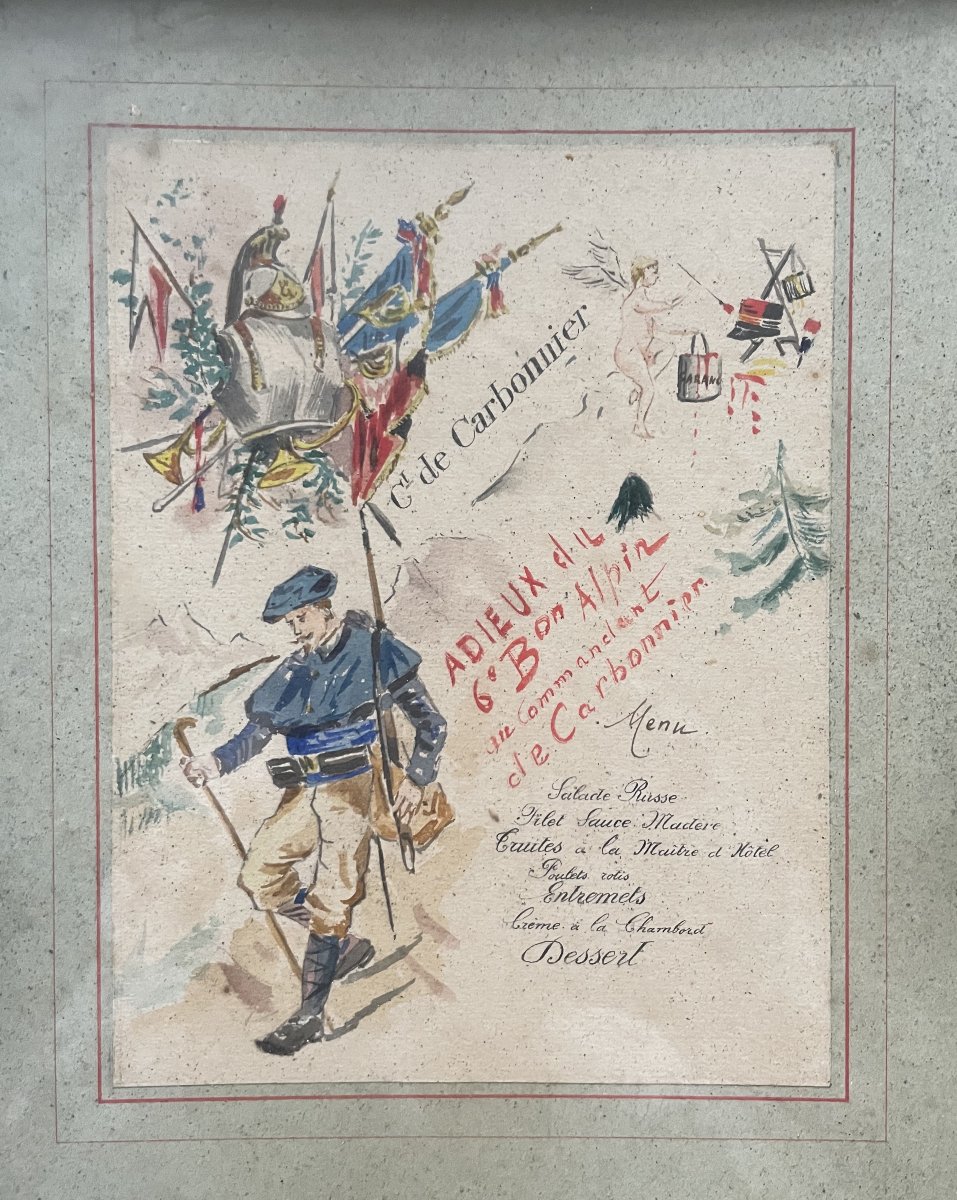 Ct de Carbonnier
ADIEUX du
6e Bon Alpin
au Commandant
de Carbonnier
Menu
Salade Russe
Filet Sauce Madère
Truites à la Maître d'Hôtel
Poulets rotis
Entremets
Crème à la Chambord
Dessert